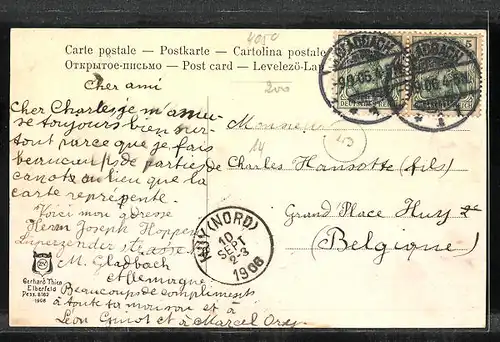 4050
Carte postale — Postkarte — Cartolina postale
Открытое-письмо — Post card — Levelező-La
200
GLADBACH
9.9.06
DEUTSCHES
REICH
5
Cher ami
Cher Charles je m'amu-
se toujours bien sur-
tout parce que je fais
beaucoup de parties de
canots au lieu que la
carte représente.
Voici mon adresse
Herrn Joseph Hoppen
Lürperzender strasse
M. Gladbach
Allemagne
Beaucoup de compliments
à toute ta maison et à
Léon Guinot et à Marcel Orey.
Monsieur
14
Charles Hansotte (fils)
Grand Place Huy
(Belgique)
HUY (NORD)
10
SEPT
2-3
1906
Gerhard Thien
Elberfeld
Pess. 8162
1906